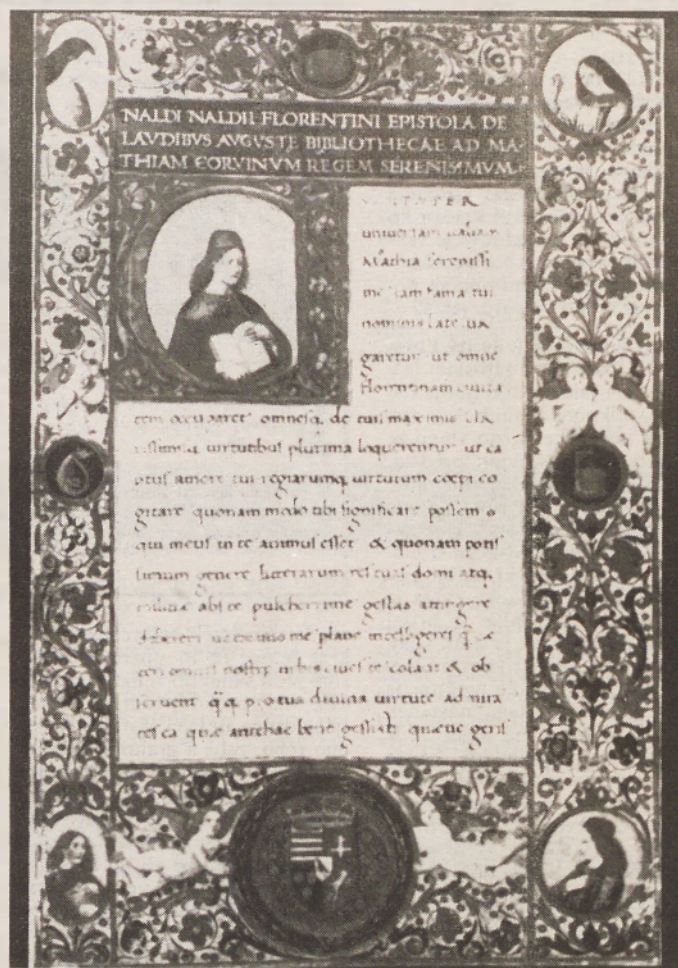 NALDI NALDII FLORENTINI EPISTOLA DE
LAVDIBVS AVGVSTE BIBLIOTHECAE AD MA-
THIAM CORVINVM REGEM SERENISSIMVM.
PER
universam italiam
Mathia serenissi
me iam fama tui
nominis late va
garetur ut omne
florentinam civita
tem occuparet omnesq, de tuis maximis cla
rissimisq, virtutibus plurima loquerentur ut ca
ptus amore tui regiarumq, virtutum coepi co
gitare quonam modo tibi significare possem
qui meus in te animus esset & quonam potis
simum genere litterarum res tuas domi atq,
militia abs te pulcherrime gestas attingere
me plane intelligeres
nostre urbis cives te colant & ob
servent pro tua divina virtute ad mira
tes ea quae antehac bene gessisti quaeve geris